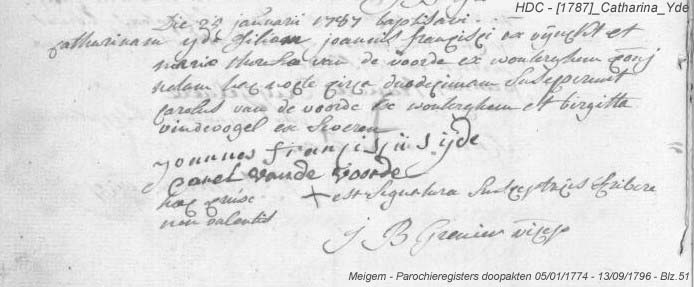 HDC - [1787]_Catharina_Yde
Die 25 januarii 1787 baptisavi
catharinam yde filiam joannis francisci ex vijnckt et
maria theresia van de voorde ex wonterghem conj
natam hac nocte circa duodecimam susceperunt
carolus van de voorde ex wonterghem et birgitta
vindevogel ex
joannes francisciis ijde
carel vande voorde
hac cruce + est signatura susceptricis scribere
non valentis
J B Grenier
Meigem - Parochieregisters doopakten 05/01/1774 - 13/09/1796 - Blz.51